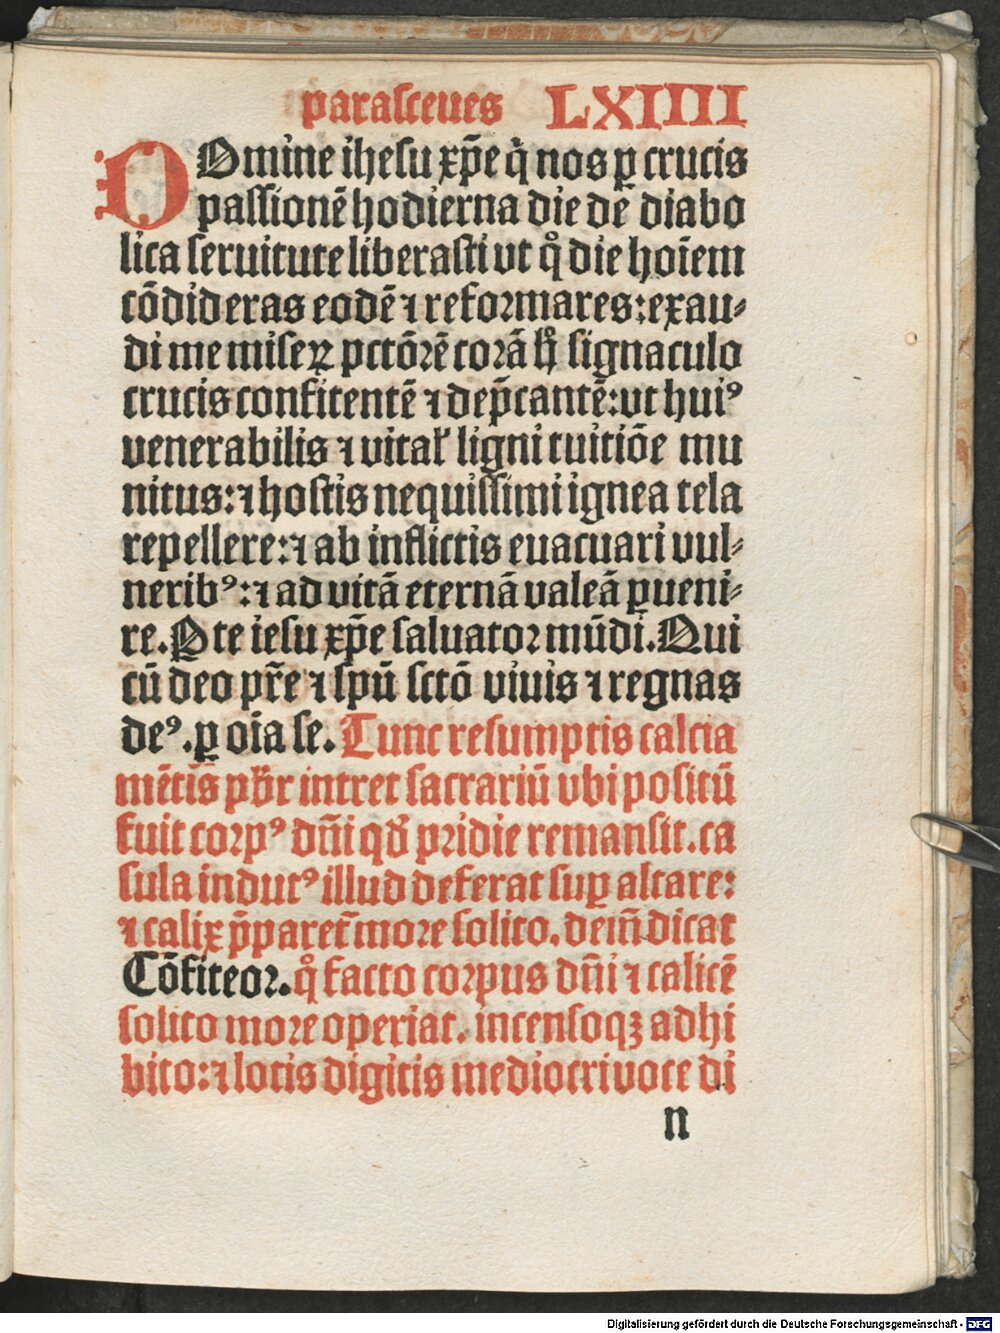 parasceues LXIIII
DOmine ihesu xp̄e q̇ nos ꝑ crucis
passionē hodierna die dē diabo
lica seruitute liberasti ut qͦ die hoīem
cōdideras eodē ⁊ reformares: exau⸗
di me miseꝝ pctōrē corā hͦ signaculo
crucis confitentē ⁊ dep̄cantē: ut huiꝰ
venerabilis ⁊ vital' ligni tuitiōe mu
nitus: ⁊ hostis nequissimi ignea tela
repellere: ⁊ ab inflictis euacuari vul⸗
neribꝰ: ⁊ ad vitā eternā valeā ꝑueni⸗
re. P te iesu xp̄e saluator mūdi. Qui
cū deo pr̄e ⁊ spū sctō vivis ⁊ regnas
deꝰ. ꝑ oīa se. Tunc resumptis calcia
mētis pb̄r intret sacrariū ubi positū
fuit corpꝰ dn̄i qd̕ pridie remansit. ca
sula indutꝰ illud deferat suꝑ altare:
⁊ calix p̄paret̄ more solito. dein̄ dicat
Cōfiteor. qͦ facto corpus dn̄i ⁊ calicē
solito more operiat. incensoqꝫ adhi
bito: ⁊ lotis digitis mediocri voce di
n
Digitalisierung gefördert durch die Deutsche Forschungsgemeinschaft - DFG